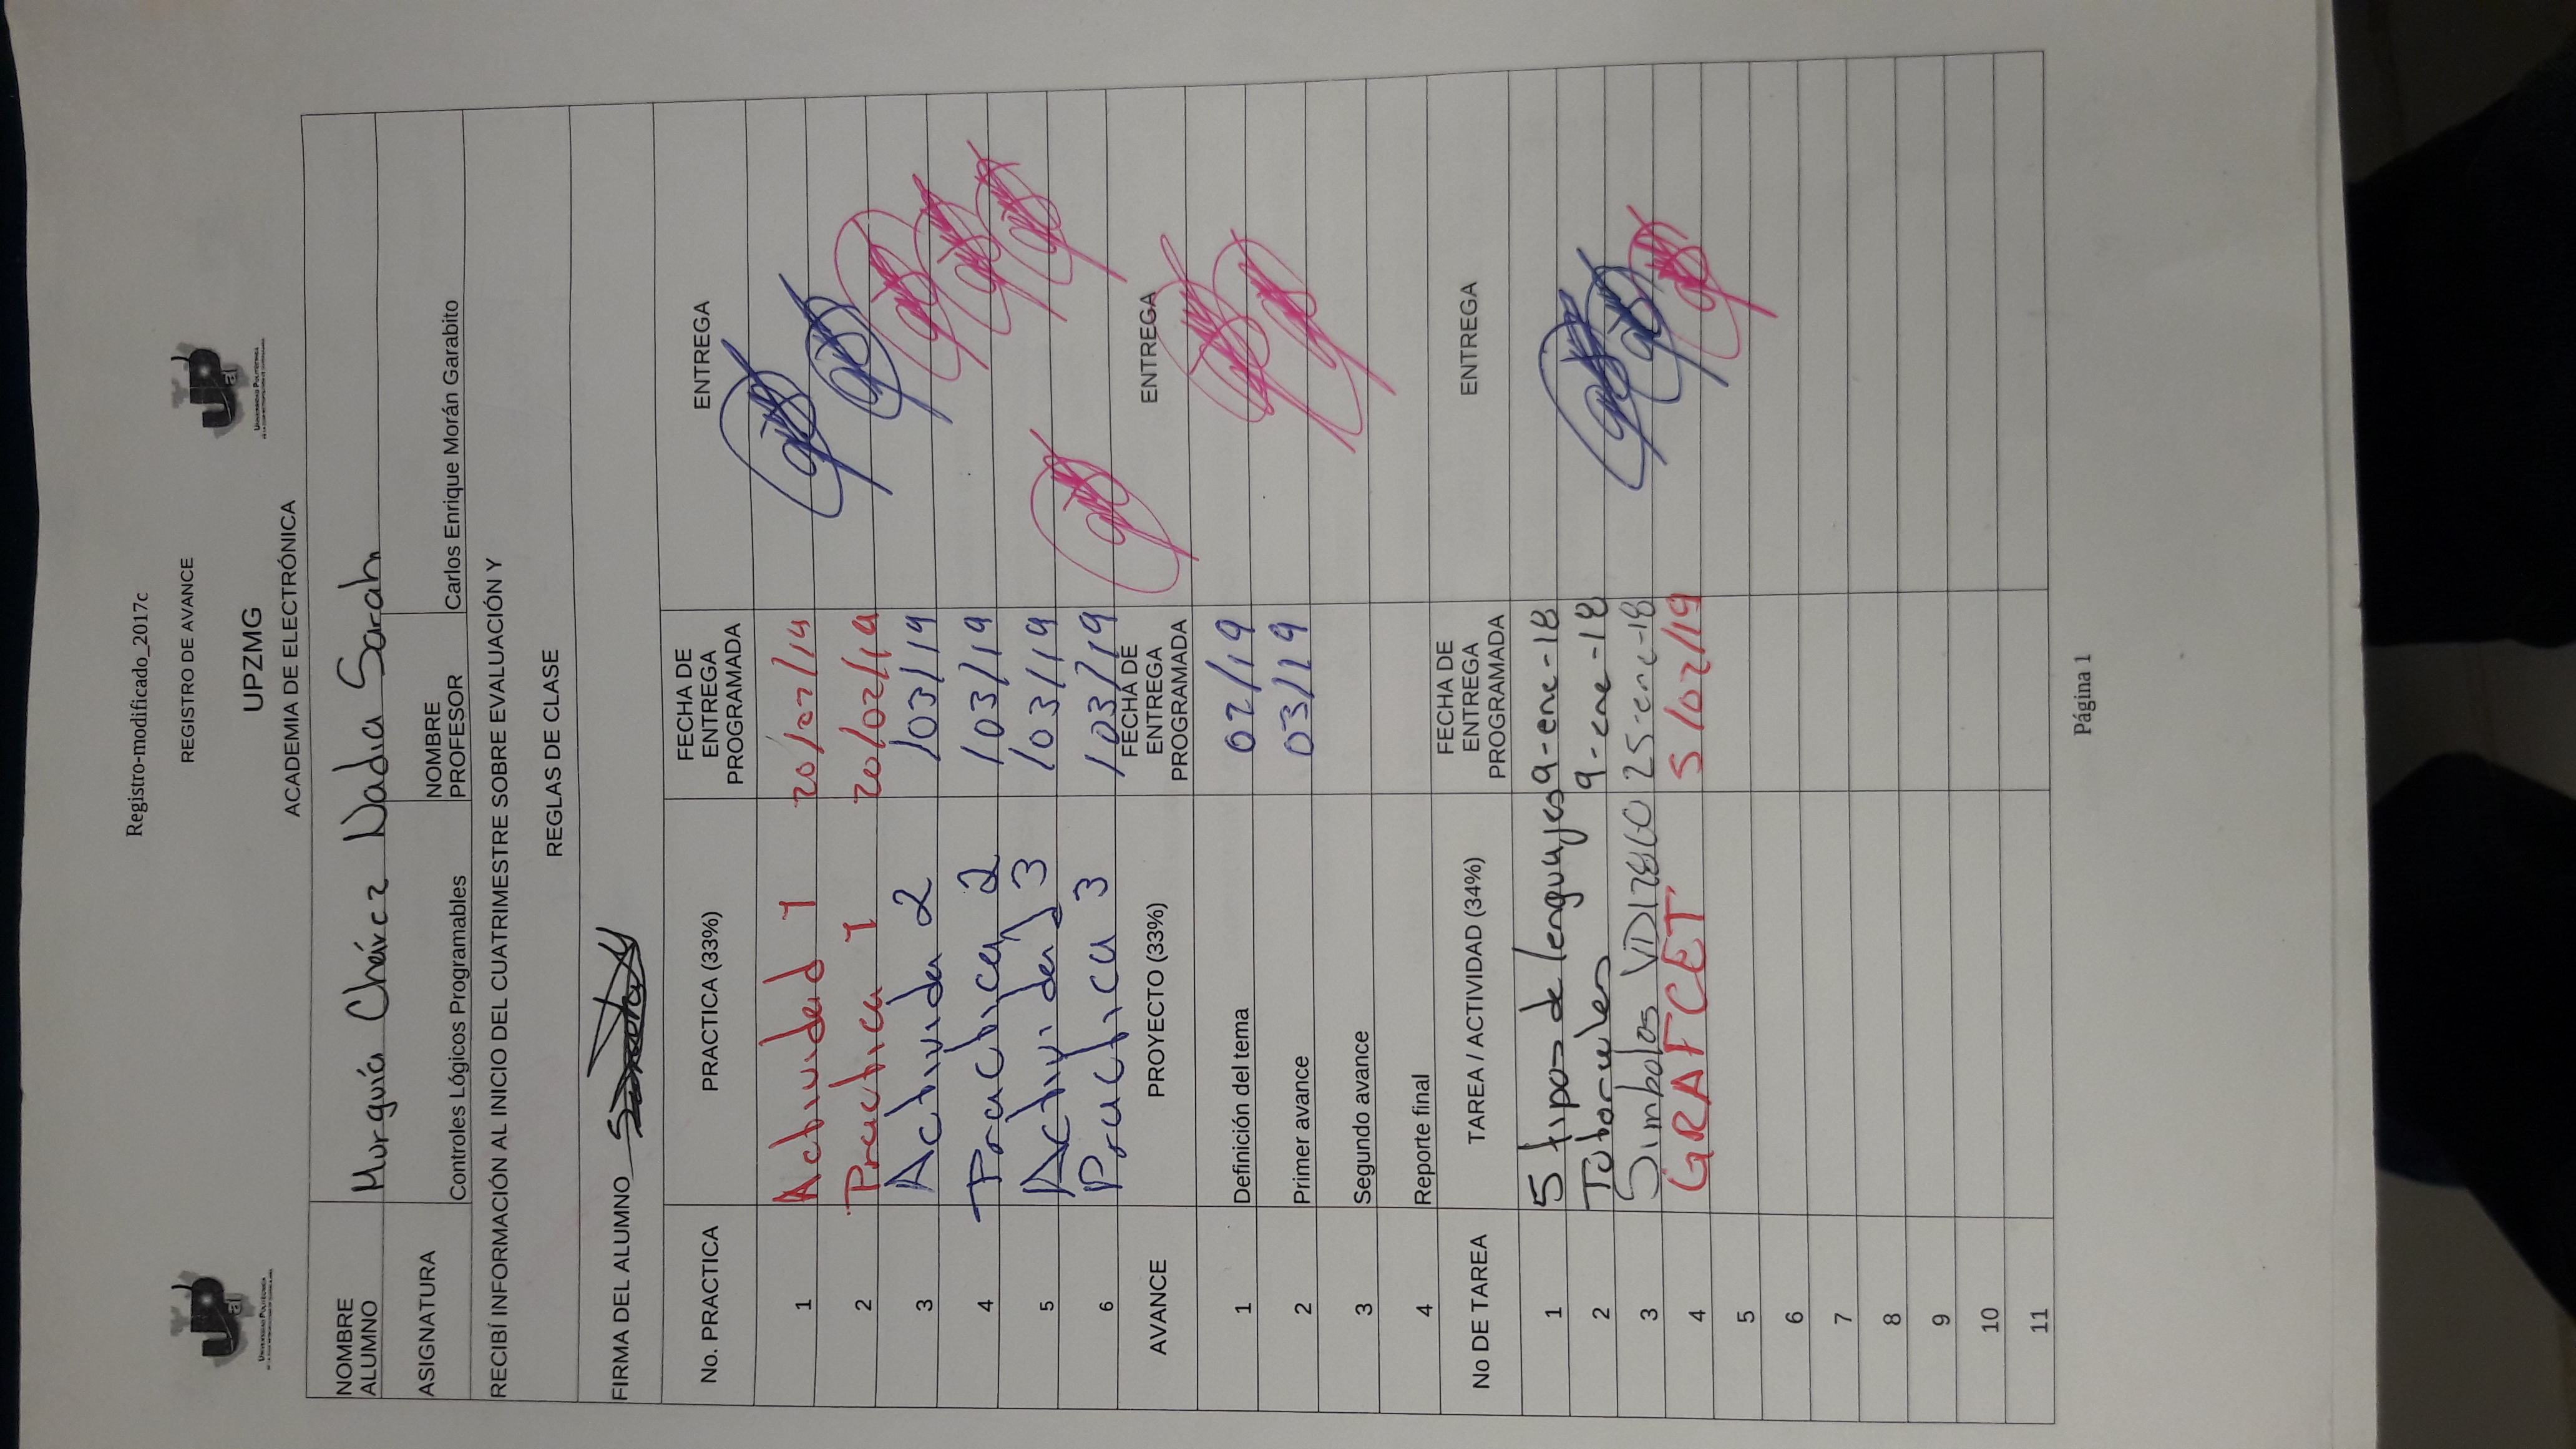 Registro-modificado_2017c
REGISTRO DE AVANCE
UPZMG
ACADEMIA DE ELECTRÓNICA
UNIVERSIDAD POLITÉCNICA
UNIVERSIDAD POLITÉCNICA
NOMBRE ALUMNO Murguía Chávez Nadia Sarah
ASIGNATURA Controles Lógicos Programables NOMBRE PROFESOR Carlos Enrique Morán Garabito
RECIBÍ INFORMACIÓN AL INICIO DEL CUATRIMESTRE SOBRE EVALUACIÓN Y
REGLAS DE CLASE
FIRMA DEL ALUMNO
No. PRACTICA PRACTICA (33%) FECHA DE ENTREGA PROGRAMADA ENTREGA
1 Actividad 1 20/02/19
2 Practica 1 20/02/19
3 Activida 2 /03/19
4 Practica 2 /03/19
5 Actividad 3 /03/19
6 Practica 3 /03/19
AVANCE PROYECTO (33%) FECHA DE ENTREGA PROGRAMADA ENTREGA
1 Definición del tema 02/19
2 Primer avance 03/19
3 Segundo avance
4 Reporte final
No DE TAREA TAREA / ACTIVIDAD (34%) FECHA DE ENTREGA PROGRAMADA ENTREGA
1 5 tipos de lenguajes 9-ene-18
2 Tutoriales 9-ene-18
3 Simbolos VDI2860 25-ene-18
4 GRAFCET 5/02/19
5
6
7
8
9
10
11
Página 1